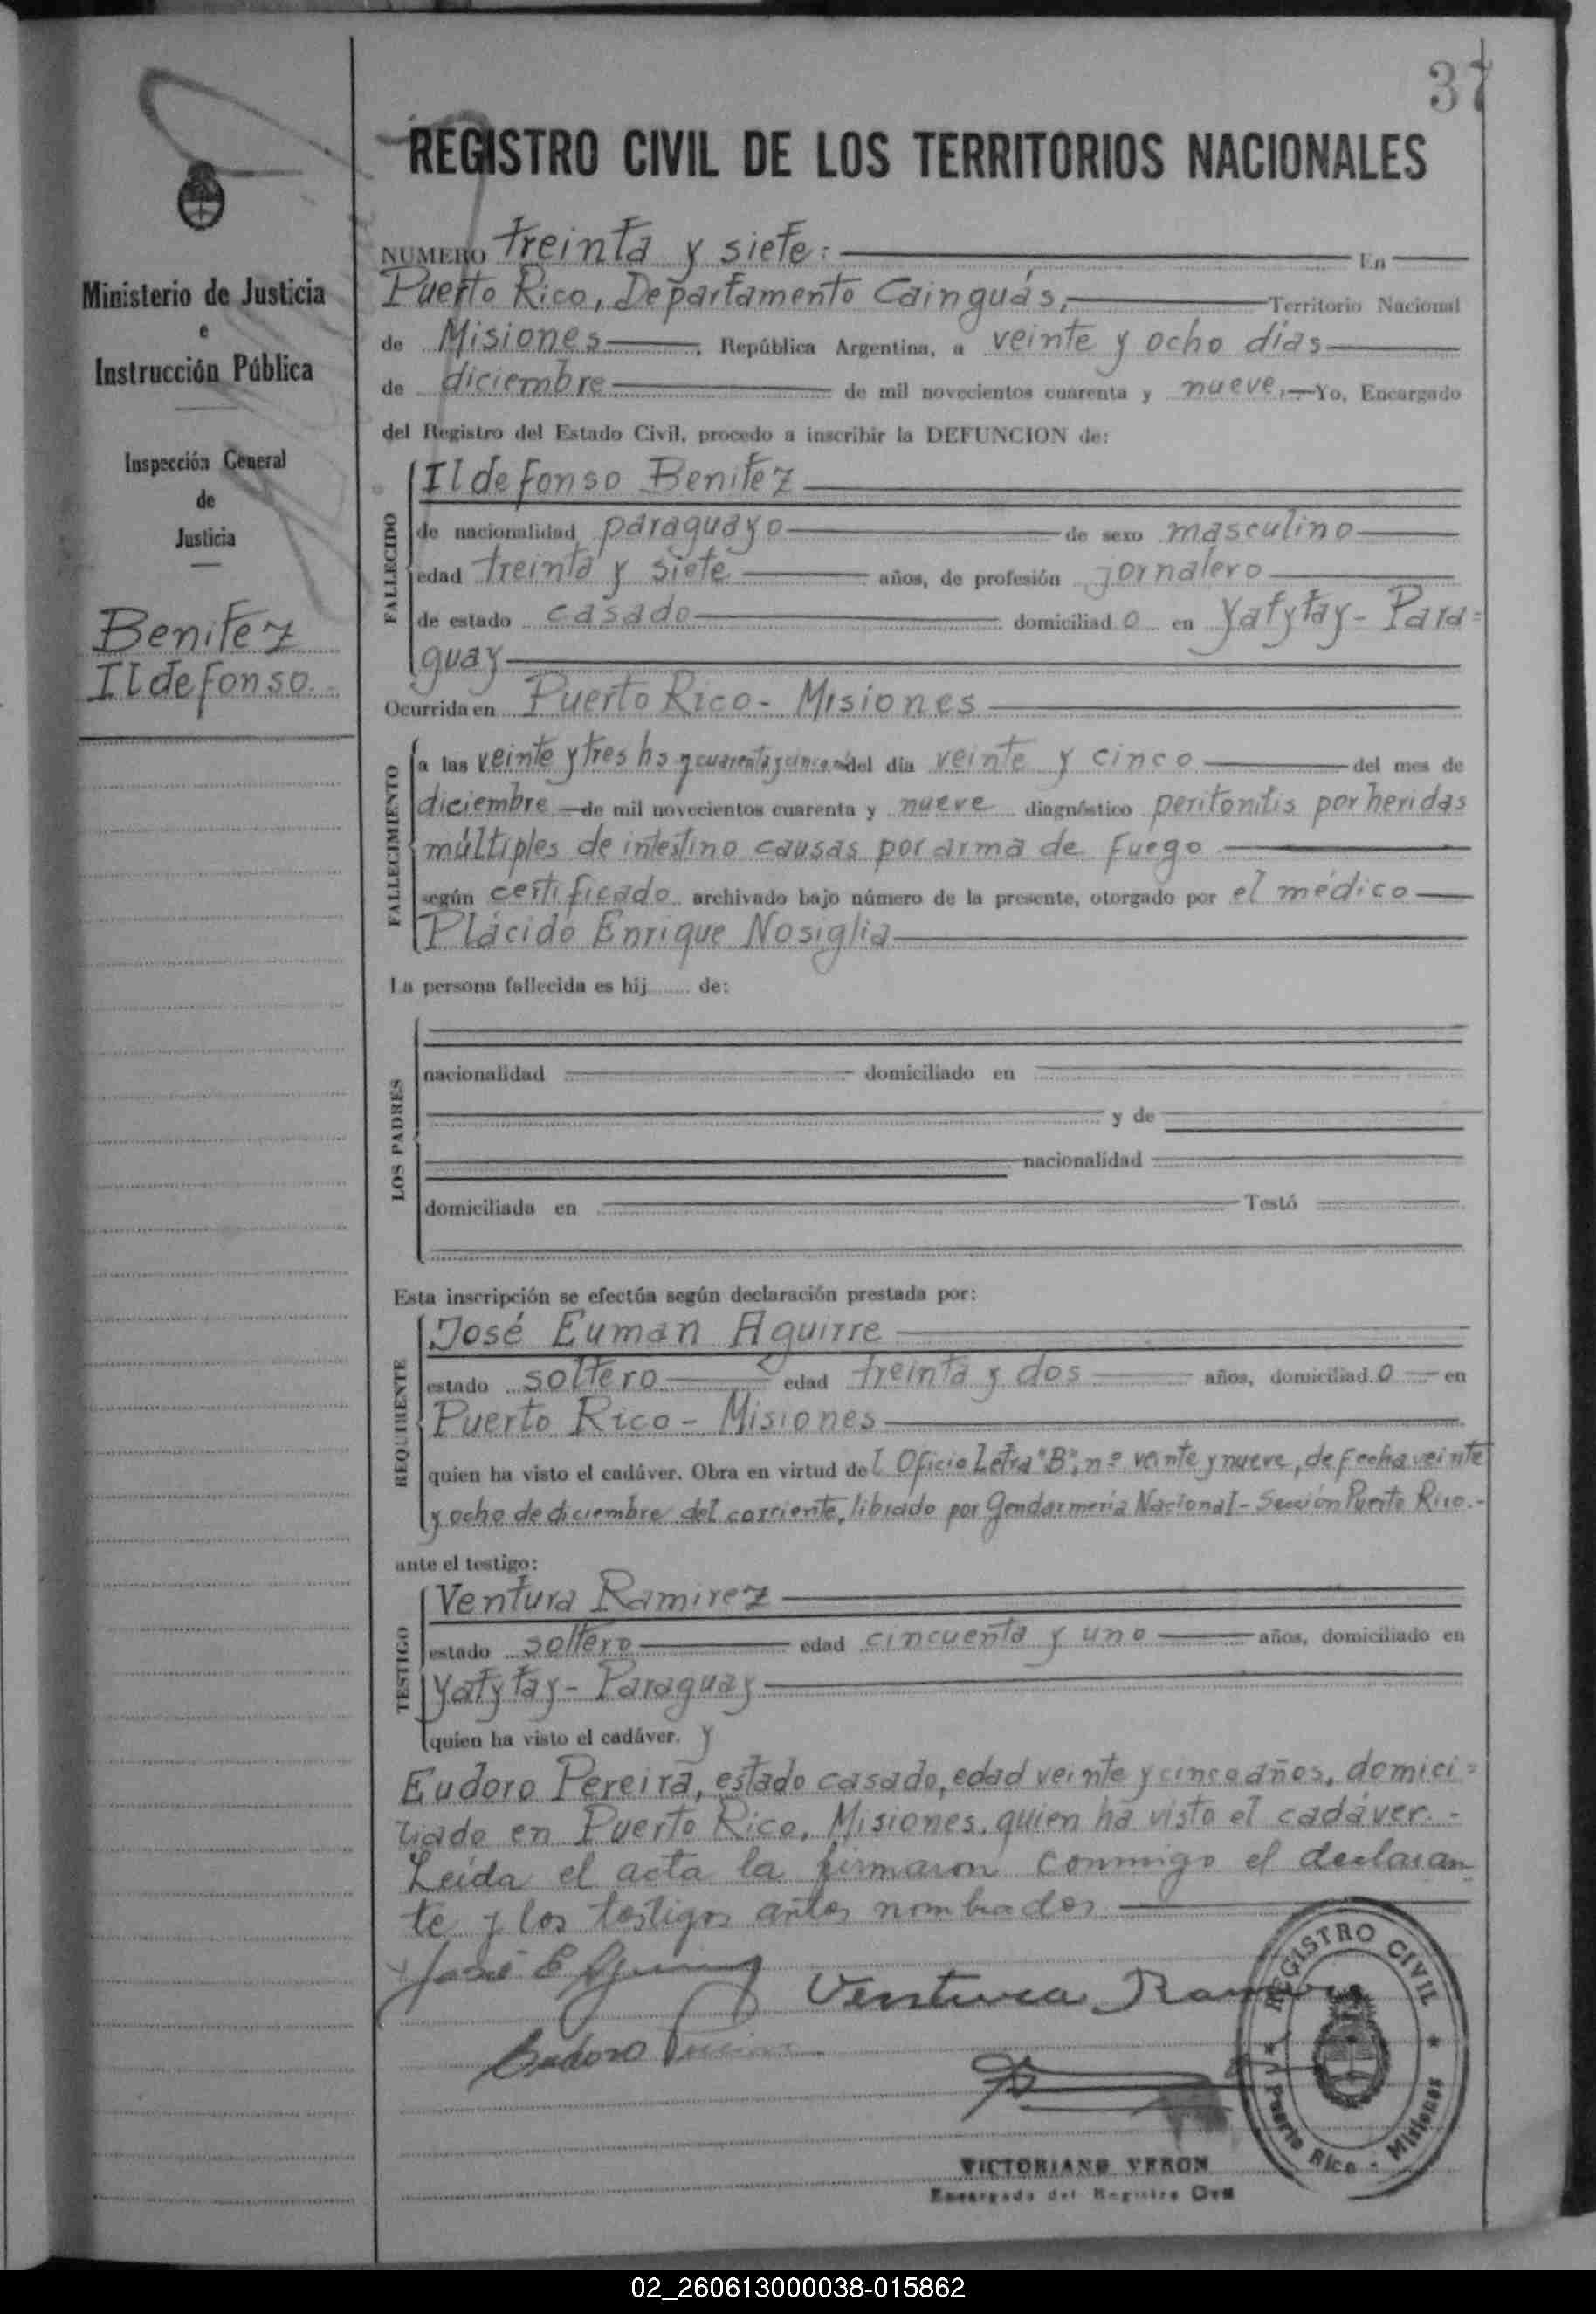 37
REGISTRO CIVIL DE LOS TERRITORIOS NACIONALES
Ministerio de Justicia
e
Instrucción Pública
Inspección General
de
Justicia
Benitez
Ildefonso
NUMERO treinta y siete: En
Puerto Rico, Departamento Cainguás, Territorio Nacional
de Misiones, República Argentina, a veinte y ocho días
de diciembre de mil novecientos cuarenta y nueve.—Yo, Encargado
del Registro del Estado Civil, procedo a inscribir la DEFUNCION de:
FALLECIDO
Ildefonso Benitez
de nacionalidad paraguayo de sexo masculino
edad treinta y siete años, de profesión jornalero
de estado casado domiciliad o en Yatytay - Para=
guay
Ocurrida en Puerto Rico - Misiones
FALLECIMIENTO
a las veinte y tres hs y cuarenta y cinco del día veinte y cinco del mes de
diciembre de mil novecientos cuarenta y nueve diagnóstico peritonitis por heridas
múltiples de intestino causas por arma de fuego
según certificado archivado bajo número de la presente, otorgado por el médico
Plácido Enrique Nosiglia
La persona fallecida es hij de:
LOS PADRES
nacionalidad domiciliado en
y de
nacionalidad
domiciliada en Testó
Esta inscripción se efectúa según declaración prestada por:
REQUIRENTE
José Euman Aguirre
estado soltero edad treinta y dos años, domiciliad o en
Puerto Rico - Misiones
quien ha visto el cadáver. Obra en virtud de l Oficio Letra "B", nº veinte y nueve, de fecha veinte
y ocho de diciembre del corriente, librado por Gendarmería Nacional - Sección Puerto Rico.-
ante el testigo:
TESTIGO
Ventura Ramirez
estado soltero edad cincuenta y uno años, domiciliado en
Yatytay - Paraguay
quien ha visto el cadáver. y
Eudoro Pereira, estado casado, edad veinte y cinco años, domici=
liado en Puerto Rico, Misiones, quien ha visto el cadáver.-
Leída el acta la firmaron conmigo el declaran
te y los testigos antes nombrados
José E Aguirre
Ventura Ramirez
Eudoro Pereira
REGISTRO CIVIL
Puerto Rico - Misiones
VICTORIANO VERON
Encargado del Registro Civil
02_260613000038-015862